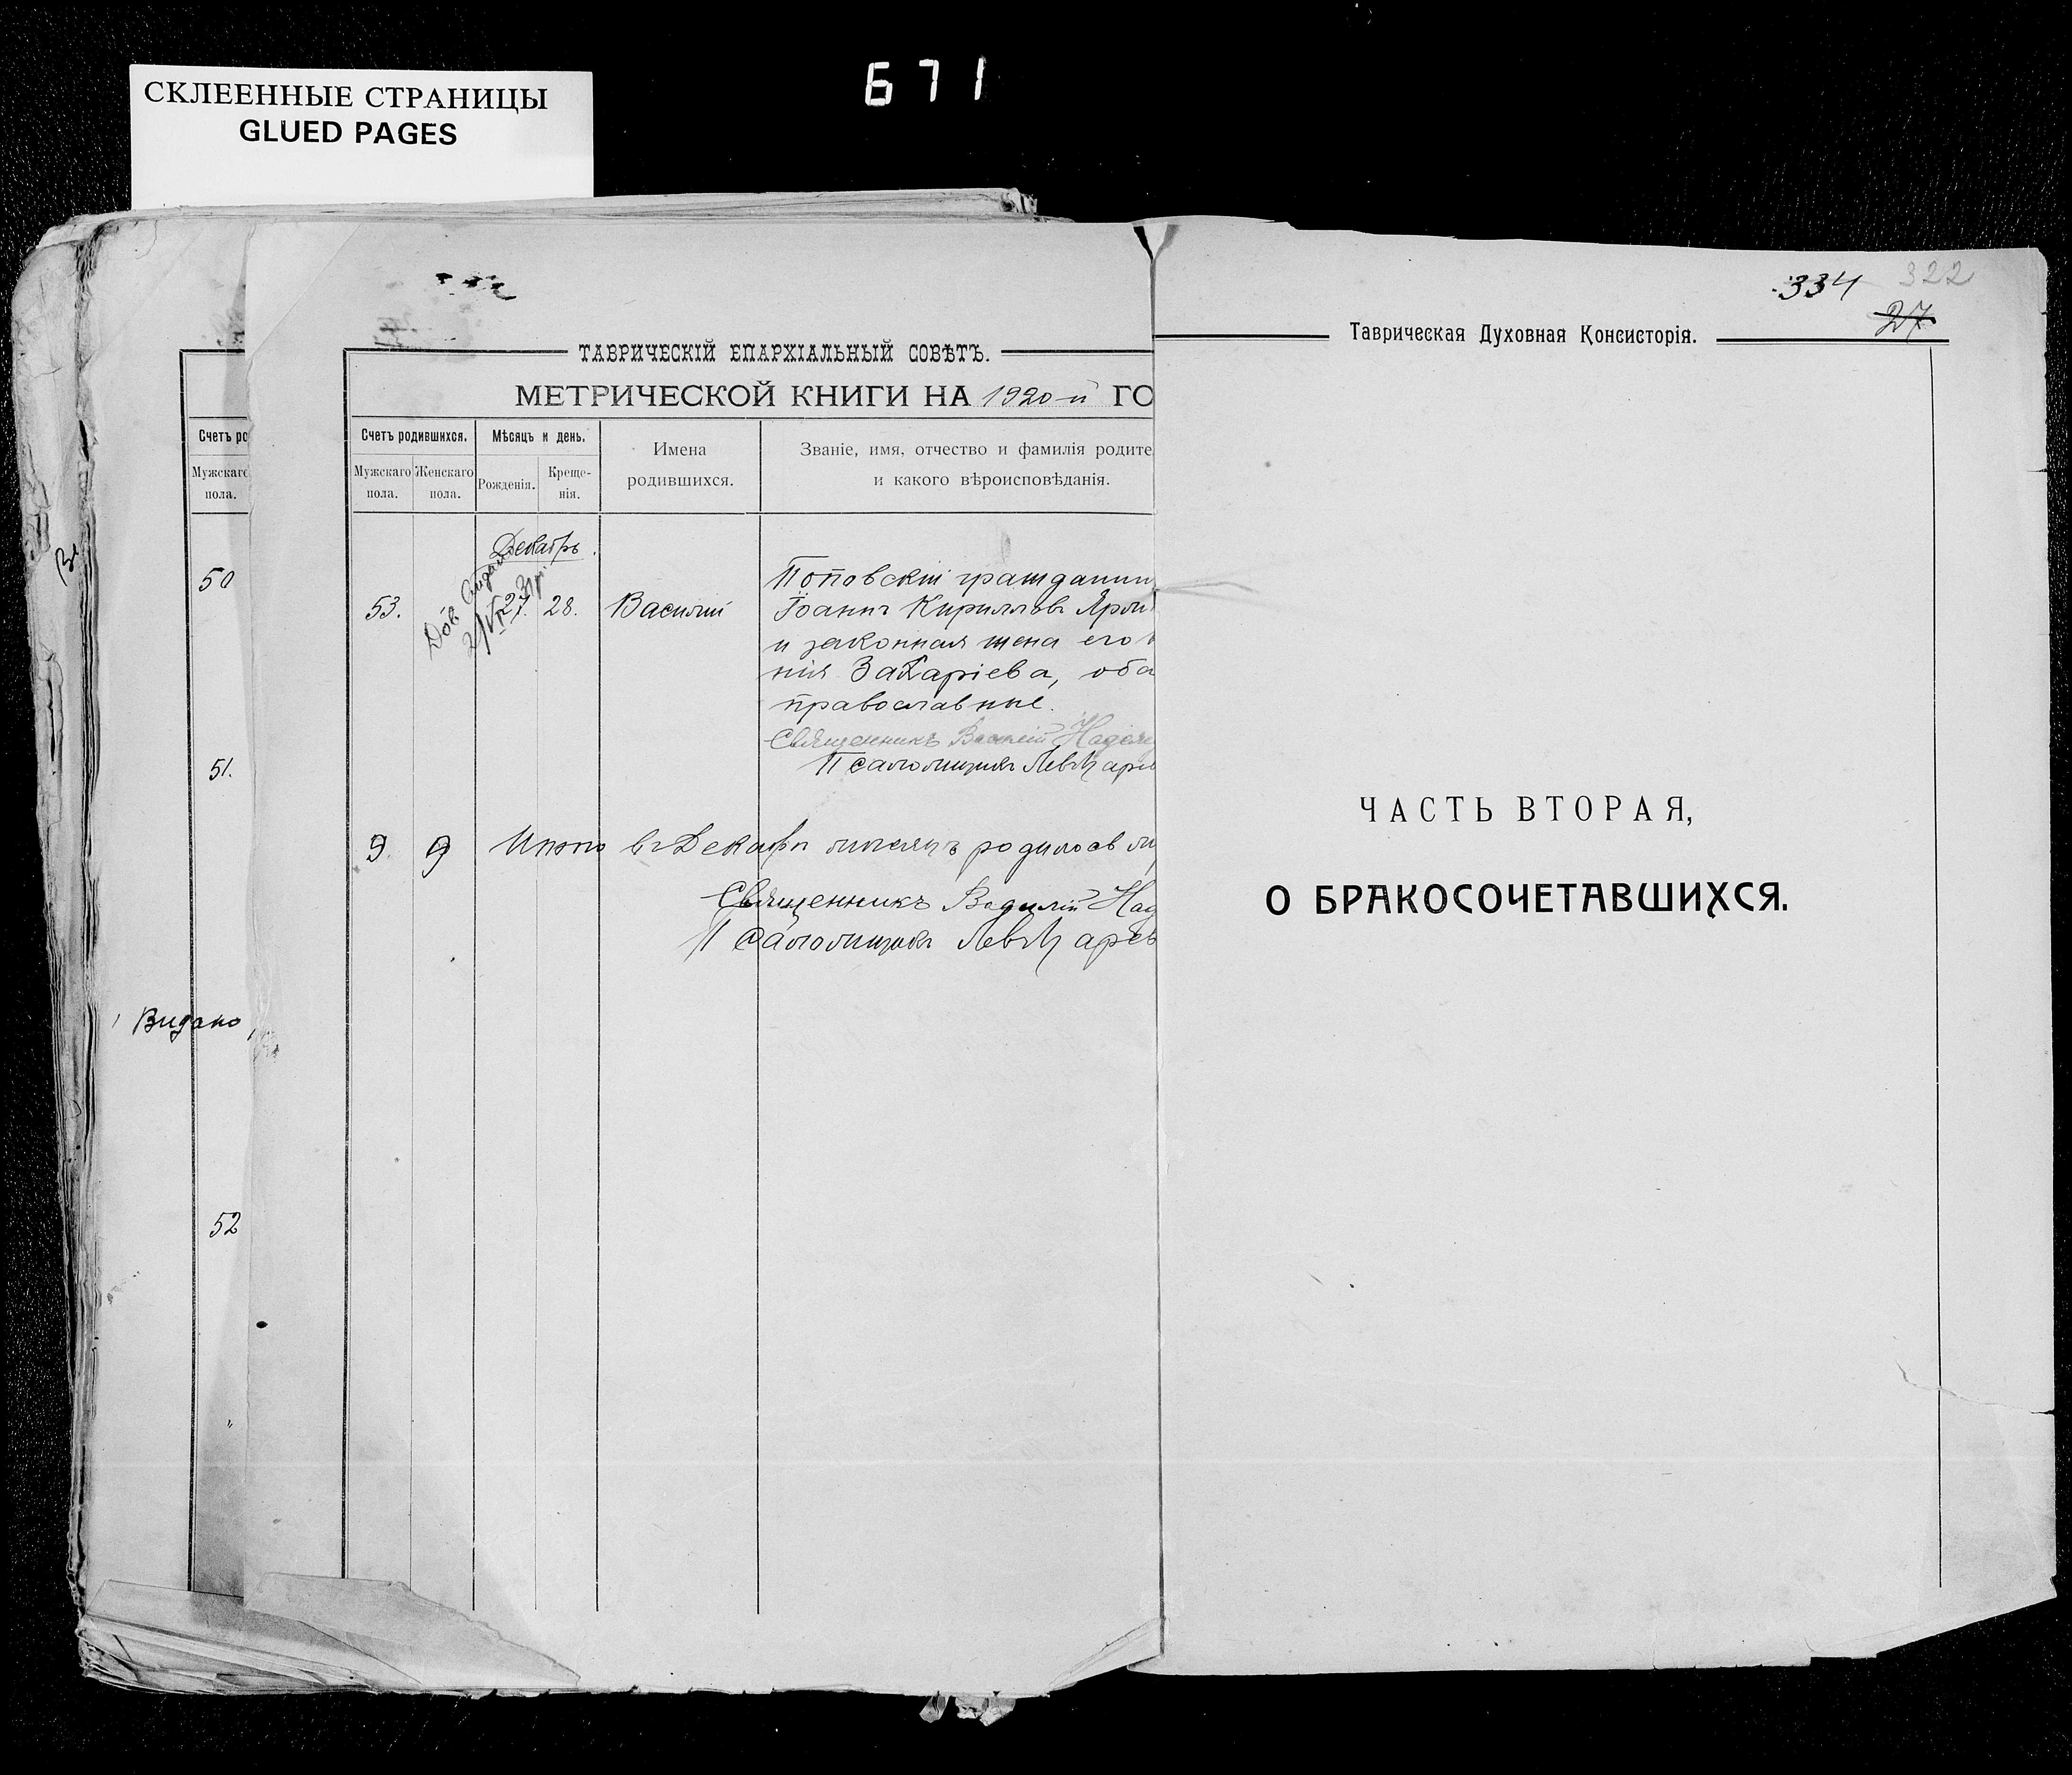 671
СКЛЕЕННЫЕ СТРАНИЦЫ
GLUED PAGES
Счетъ ро
Мужскаго
пола.
50
51.
Видано
52
ТАВРИЧЕСКІЙ ЕПАРХІАЛЬНЫЙ СОВѢТЪ.
МЕТРИЧЕСКОЙ КНИГИ НА 1920-й ГО
Счетъ родившихся.
Мужскаго пола.
Женскаго пола.
Мѣсяцъ и день.
Рожденія.
Креще-
нія.
Имена
родившихся.
Званіе, имя, отчество и фамилія родите
и какого вѣроисповѣданія.
Декабрь
53.
27.
28.
Василій
Поповскій граждани
Іоаннъ Кирилловъ Ярм
и законная жена его
нія Захаріева, оба
православные.
Священникъ Василій
Псаломщикъ Левъ Царев
9 9 Итого въ Декабрѣ мѣсяцѣ родилось
Священникъ Василій Над
Псаломщикъ Левъ Царев
334
322
27
Таврическая Духовная Консисторія.
ЧАСТЬ ВТОРАЯ,
О БРАКОСОЧЕТАВШИХСЯ.